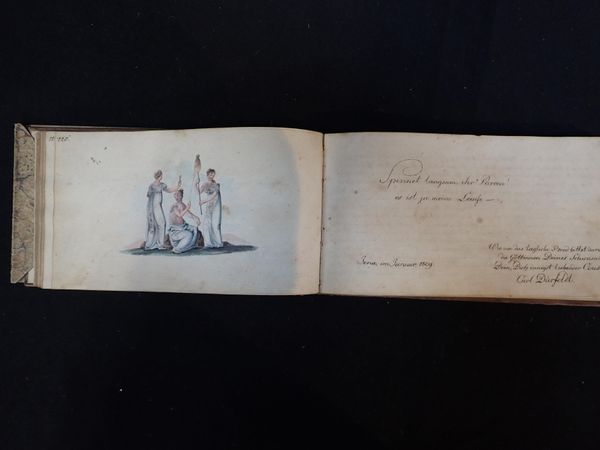 Spinnet langsam ihr Parcen!
es ist ja meine Laufe —
Jena, im Januar 1809.
Wie um das tägliche Brod bittet
die Göttinnen Deiner
Dein, Dich innigst liebender
Carl Dürfeld.